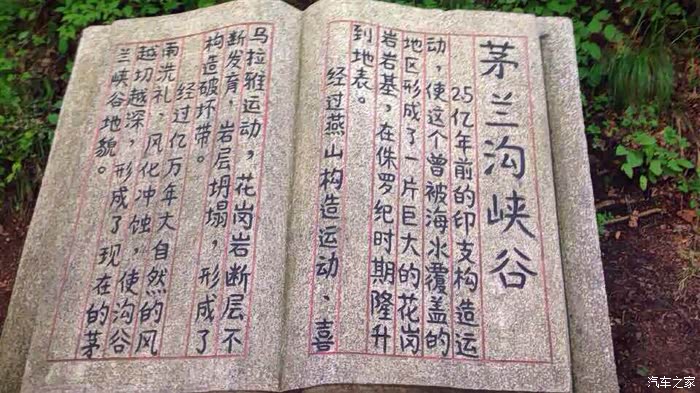 茅兰沟峡谷
25亿年前的印支构造运
动，使这个曾被海水覆盖的
地区形成了一片巨大的花岗
岩岩基，在侏罗纪时期隆升
到地表。
经过燕山构造运动、喜
马拉雅运动，花岗岩断层不
断发育，岩层坍塌，形成了
构造破坏带。
经过亿万年大自然的风
雨洗礼，风化冲蚀，使沟谷
越切越深，形成了现在的茅
兰峡谷地貌。
汽车之家